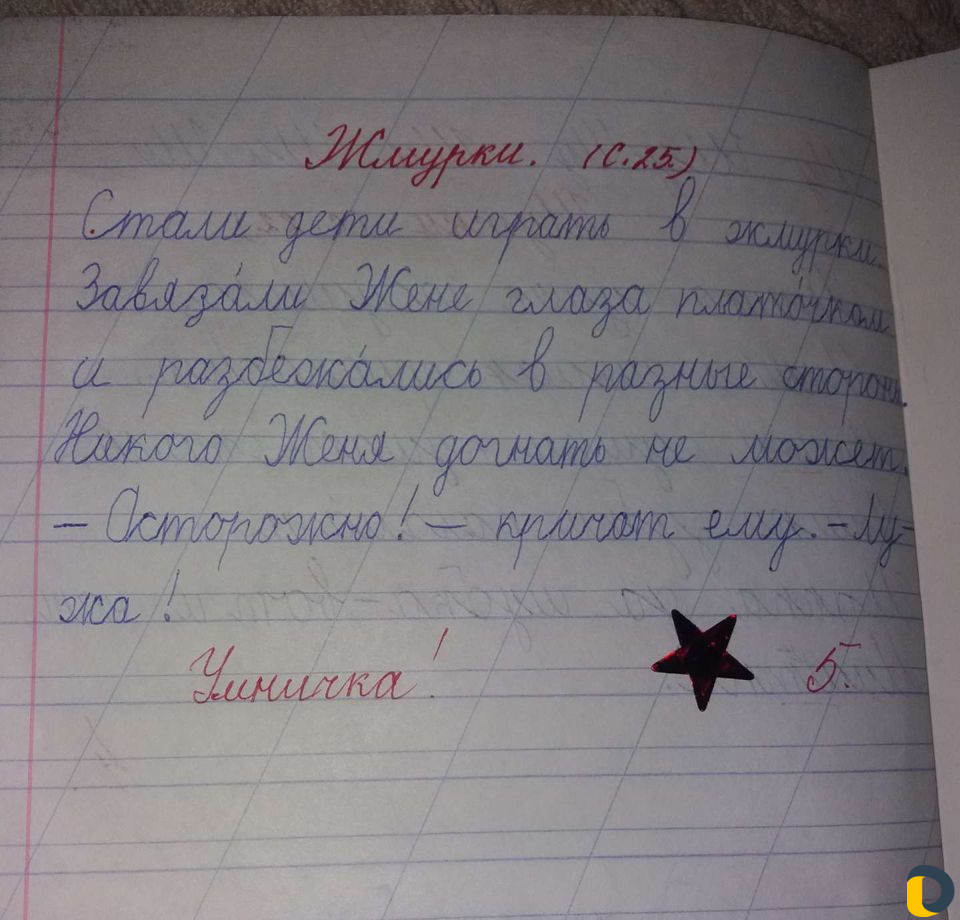 Жмурки. (с. 25.)
Стали дети играть в жмурки.
Завяза́ли Жене глаза плато́чком
и разбежа́лись в разные стороны.
Никого Женя догнать не может.
– Осторожно! – кричат ему. – Лу-
жа!
Умничка! 5.